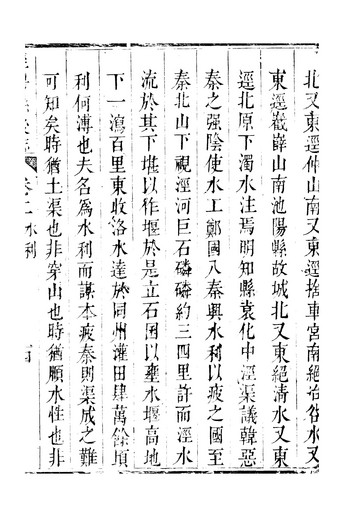 北又東逕仲山南又東逕捨車宮南絕冶谷水又
東逕巀嶭山南池陽縣故城北又東絕清水又東
逕北原下濁水注焉明知縣袁化中涇渠議韓惡
秦之强陰使水工鄭國入秦興水利以疲之國至
秦北山下視涇河巨石磷磷約三四里許而涇水
流於其下堪以作堰於是立石囷以壅水堰高地
下一瀉百里東收洛水達於同州灌田肆萬餘頃
利何溥也夫名為水利而謀本疲秦則渠成之難
可知矣時猶土渠也非穿山也時猶順水性也非
卷二 水利